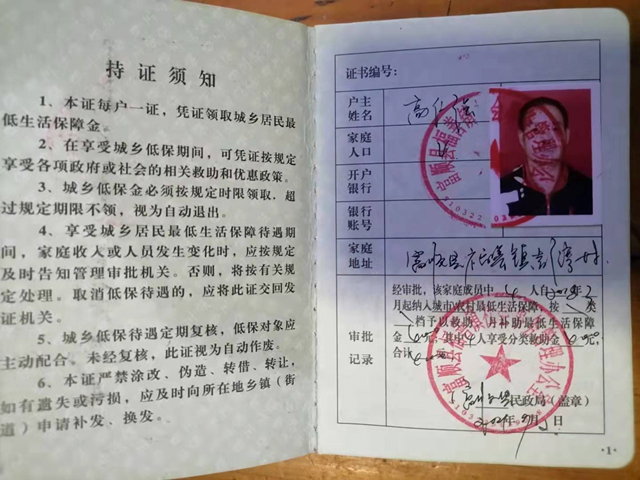 持证须知
1、本证每户一证，凭证领取城乡居民最
低生活保障金。
2、在享受城乡低保期间，可凭证按规定
享受各项政府或社会的相关救助和优惠政策。
3、城乡低保金必须按规定时限领取，超
过规定期限不领，视为自动退出。
4、享受城乡居民最低生活保障待遇期
间，家庭收入或人员发生变化时，应按规定
及时告知管理审批机关。否则，将按有关规
定处理。取消低保待遇的，应将此证交回发
证机关。
5、城乡低保待遇定期复核，低保对象应
主动配合。未经复核，此证视为自动作废。
6、本证严禁涂改、伪造、转借、转让，
如有遗失或污损，应及时向所在地乡镇（街
道）申请补发、换发。
证书编号：
户主
姓名
高
家庭
人口
开户
银行
银行
账号
家庭
地址
富顺县 镇 村
审批
记录
经审批，该家庭成员中 人自 年
月起纳入城市农村最低生活保障，按 类
档予以救助，月补助最低生活保障
金 元；其中 人享受分类救助金 元，
合计
民政局（盖章）
年 月 日
富顺县
510322
·1·